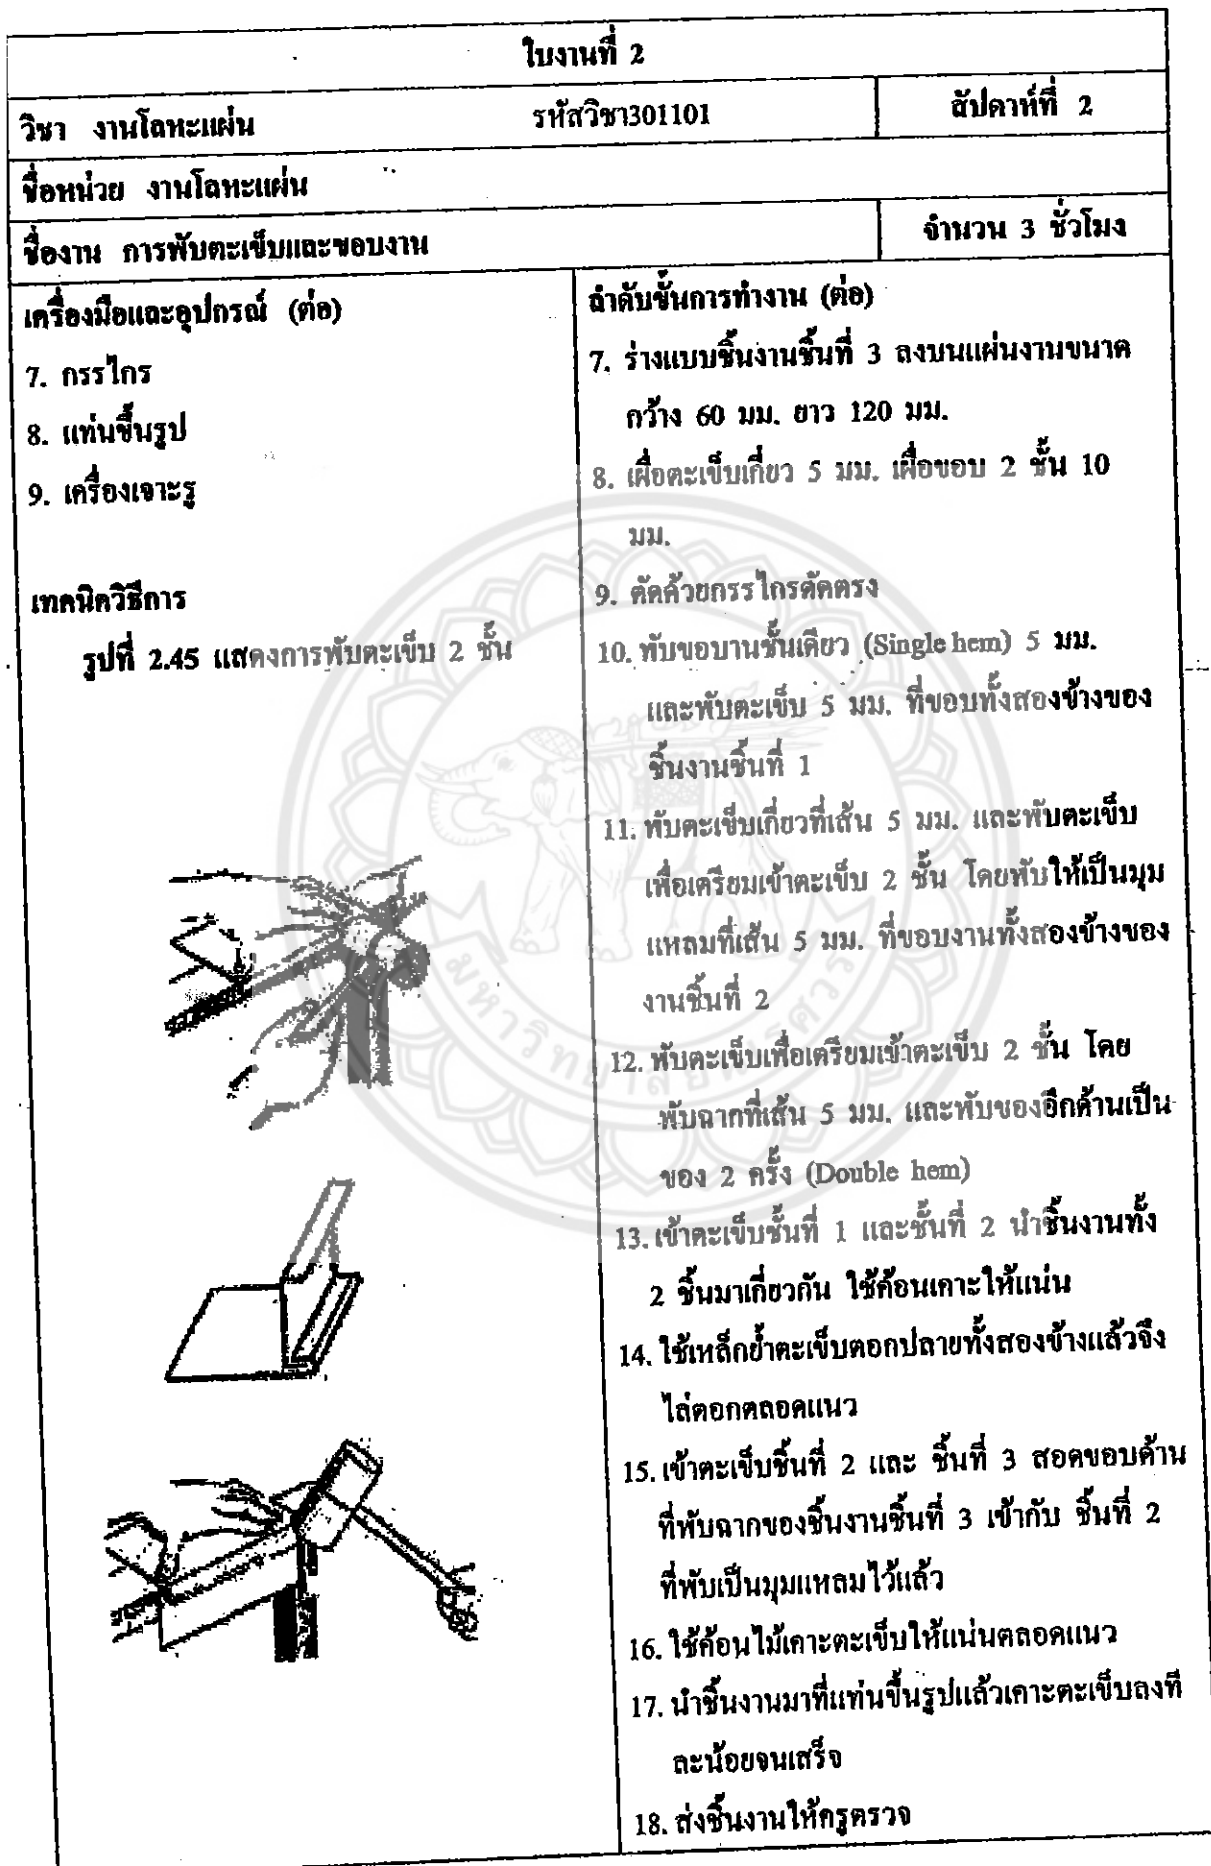 ใบงานที่ 2
วิชา งานโลหะแผ่น รหัสวิชา301101 สัปดาห์ที่ 2
ชื่อหน่วย งานโลหะแผ่น
ชื่องาน การพับตะเข็บและขอบงาน จำนวน 3 ชั่วโมง
เครื่องมือและอุปกรณ์ (ต่อ)
7. กรรไกร
8. แท่นขึ้นรูป
9. เครื่องเจาะรู
เทคนิควิธีการ
รูปที่ 2.45 แสดงการพับตะเข็บ 2 ชั้น
ลำดับขั้นการทำงาน (ต่อ)
7. ร่างแบบชิ้นงานชิ้นที่ 3 ลงบนแผ่นงานขนาด
กว้าง 60 มม. ยาว 120 มม.
8. เผื่อตะเข็บเกี่ยว 5 มม. เผื่อขอบ 2 ชั้น 10
มม.
9. ตัดด้วยกรรไกรตัดตรง
10. ทับขอบานชั้นเดียว (Single hem) 5 มม.
และพับตะเข็บ 5 มม. ที่ขอบทั้งสองข้างของ
ชิ้นงานชิ้นที่ 1
11. พับตะเข็บเกี่ยวที่เส้น 5 มม. และพับตะเข็บ
เพื่อเตรียมเข้าตะเข็บ 2 ชั้น โดยพับให้เป็นมุม
แหลมที่เส้น 5 มม. ที่ขอบงานทั้งสองข้างของ
งานชิ้นที่ 2
12. พับตะเข็บเพื่อเตรียมเข้าตะเข็บ 2 ชั้น โดย
พับฉากที่เส้น 5 มม. และพับของอีกด้านเป็น
ของ 2 ครั้ง (Double hem)
13. เข้าตะเข็บชั้นที่ 1 และชั้นที่ 2 นำชิ้นงานทั้ง
2 ชิ้นมาเกี่ยวกัน ใช้ค้อนเคาะให้แน่น
14. ใช้เหล็กย้ำตะเข็บตอกปลายทั้งสองข้างแล้วจึง
ไล่ตอกตลอดแนว
15. เข้าตะเข็บชิ้นที่ 2 และ ชิ้นที่ 3 สอดขอบด้าน
ที่พับฉากของชิ้นงานชิ้นที่ 3 เข้ากับ ชิ้นที่ 2
ที่พับเป็นมุมแหลมไว้แล้ว
16. ใช้ค้อนไม้เคาะตะเข็บให้แน่นตลอดแนว
17. นำชิ้นงานมาที่แท่นขึ้นรูปแล้วเคาะตะเข็บลงที
ละน้อยจนเสร็จ
18. ส่งชิ้นงานให้ครูตรวจ